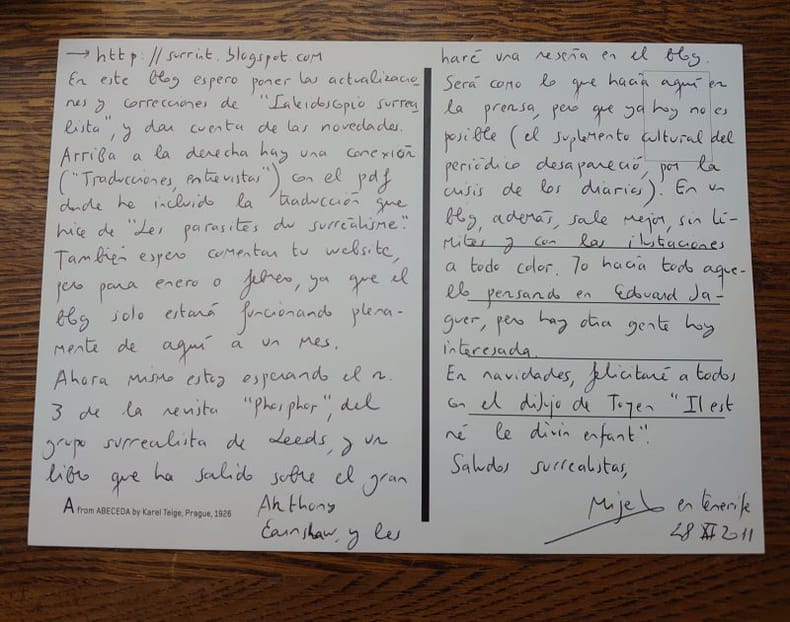 → http://surrint.blogspot.com
En este blog espero poner las actualizacio-
nes y correcciones de "Caleidoscopio surrea-
lista", y dar cuenta de las novedades.
Arriba a la derecha hay una conexión
("Traducciones, entrevistas") con el pdf
donde he incluido la traducción que
hice de "Les parasites du surréalisme".
También espero comentar tu website,
pero para enero o febrero, ya que el
blog solo estará funcionando plena-
mente de aquí a un mes.
Ahora mismo estoy esperando el n.
3 de la revista "Phosphor", del
grupo surrealista de Leeds, y un
libro que ha salido sobre el gran
Anthony
Earnshaw, y les
A from ABECEDA by Karel Teige, Prague, 1926
haré una reseña en el blog.
Será como lo que hacía aquí en
la prensa, pero que ya hoy no es
posible (el suplemento cultural del
periódico desapareció, por la
crisis de los diarios). En un
blog, además, sale mejor, sin lí-
mites y con las ilustaciones
a todo color. Yo hacía todo aque-
llo pensando en Edouard Ja-
guer, pero hay otra gente hoy
interesada.
En navidades, felicitaré a todos
con el dibujo de Toyen "Il est
né le divin enfant".
Saludos surrealistas,
Mijel en Tenerife
28 XI 2011